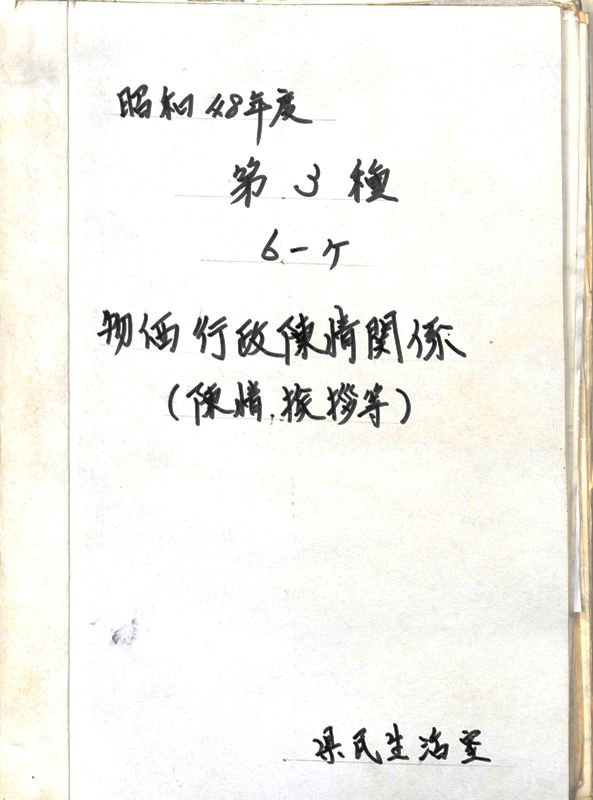 昭和48年度
第3種
6-ケ
物価行政陳情関係
(陳情、挨拶等)
県民生活室